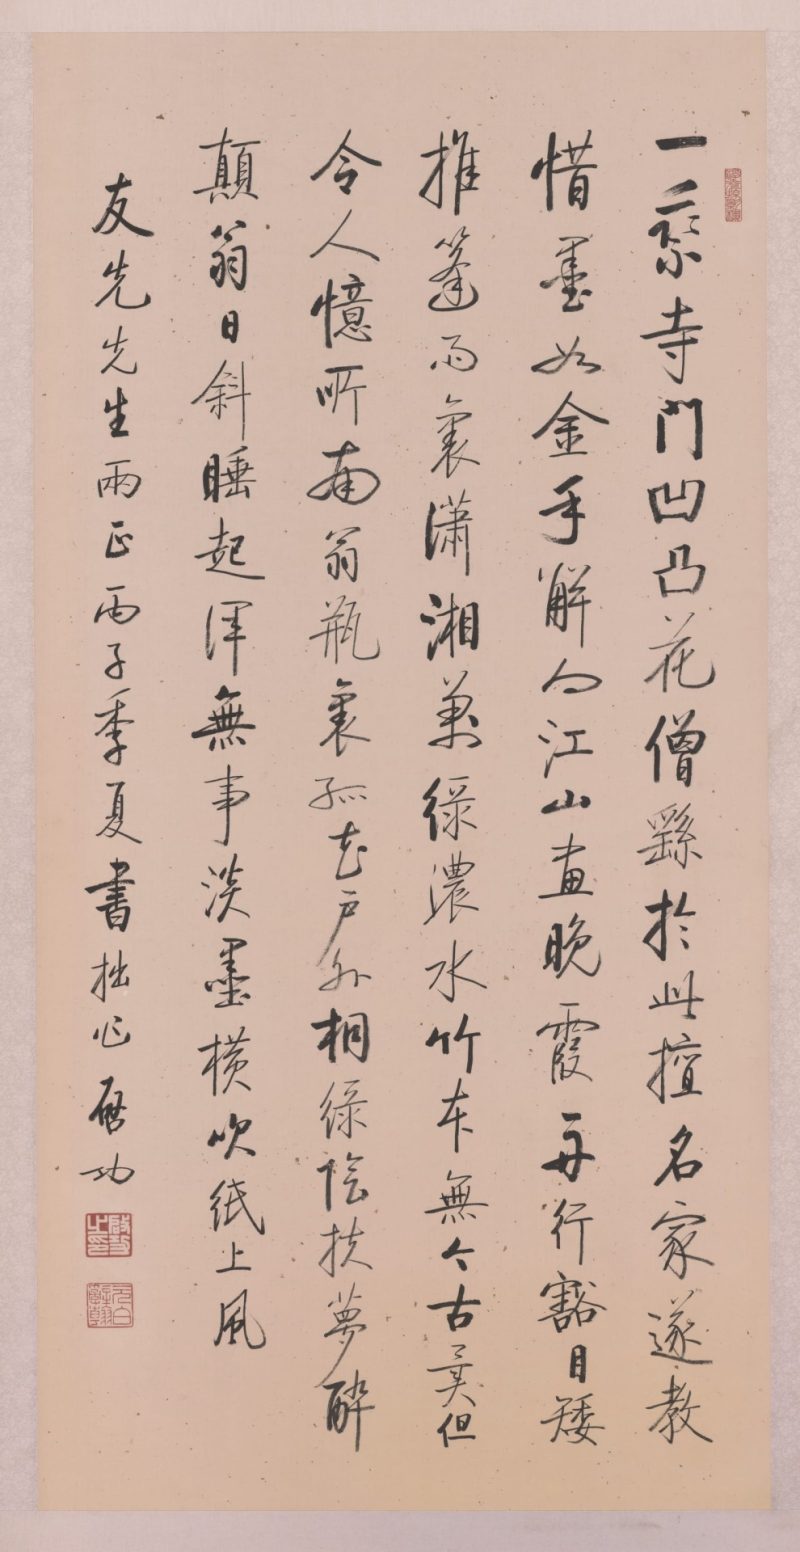 一乘寺門凹凸花僧繇於此擅名家遂教
惜墨如金手解向江山畫晚霞舟行豁目矮
推篷雨裏瀟湘萬綠濃水竹本無今古異但
令人憶所南翁瓶裏孤花戶外桐綠陰扶夢醉
顛翁日斜睡起渾無事淡墨橫吹紙上風
友先先生兩正丙子季夏書拙作啓功